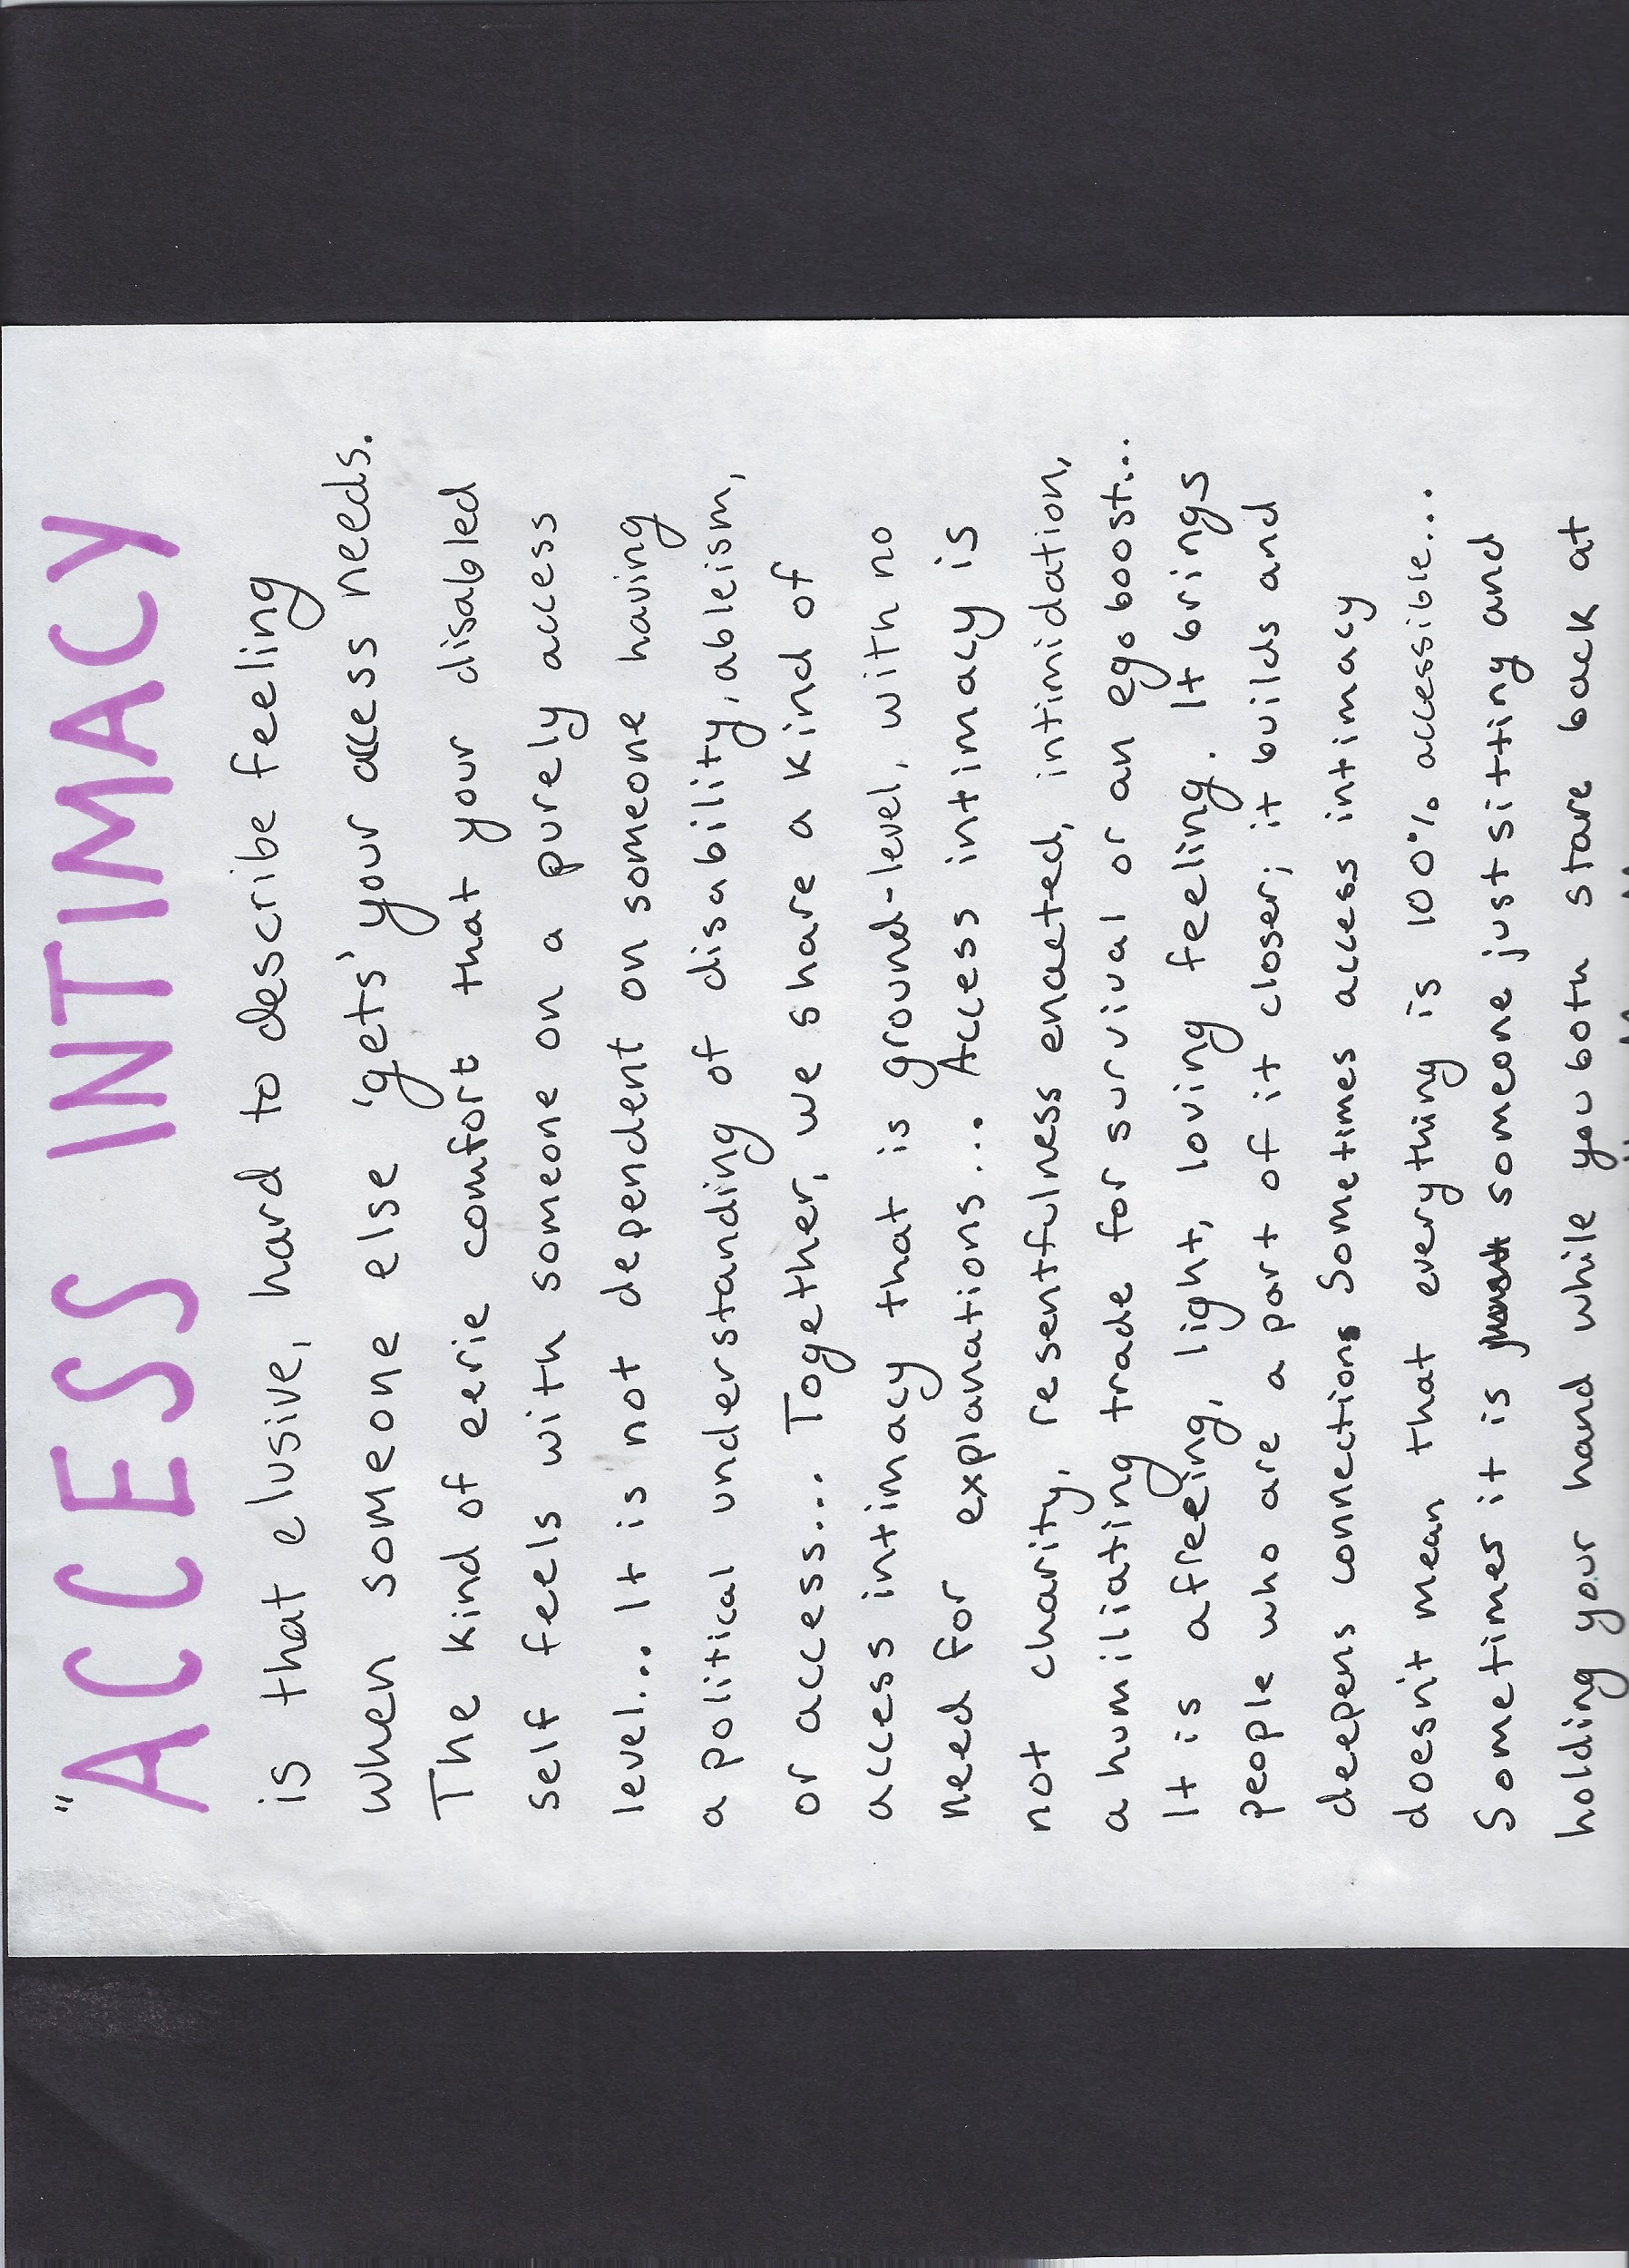 "ACCESS INTIMACY
is that elusive, hard to describe feeling
when someone else 'gets' your access needs.
The kind of eerie comfort that your disabled
self feels with someone on a purely access
level... It is not dependent on someone having
a political understanding of disability, ableism,
or access... Together, we share a kind of
access intimacy that is ground-level, with no
need for explanations... Access intimacy is
not charity, resentfulness enacted, intimidation,
a humiliating trade for survival or an ego boost...
It is a freeing, light, loving feeling. It brings
people who are a part of it closer; it builds and
deepens connections Sometimes access intimacy
doesn't mean that everything is 100% accessible...
Sometimes it is someone just sitting and
holding your hand while you both stare back at